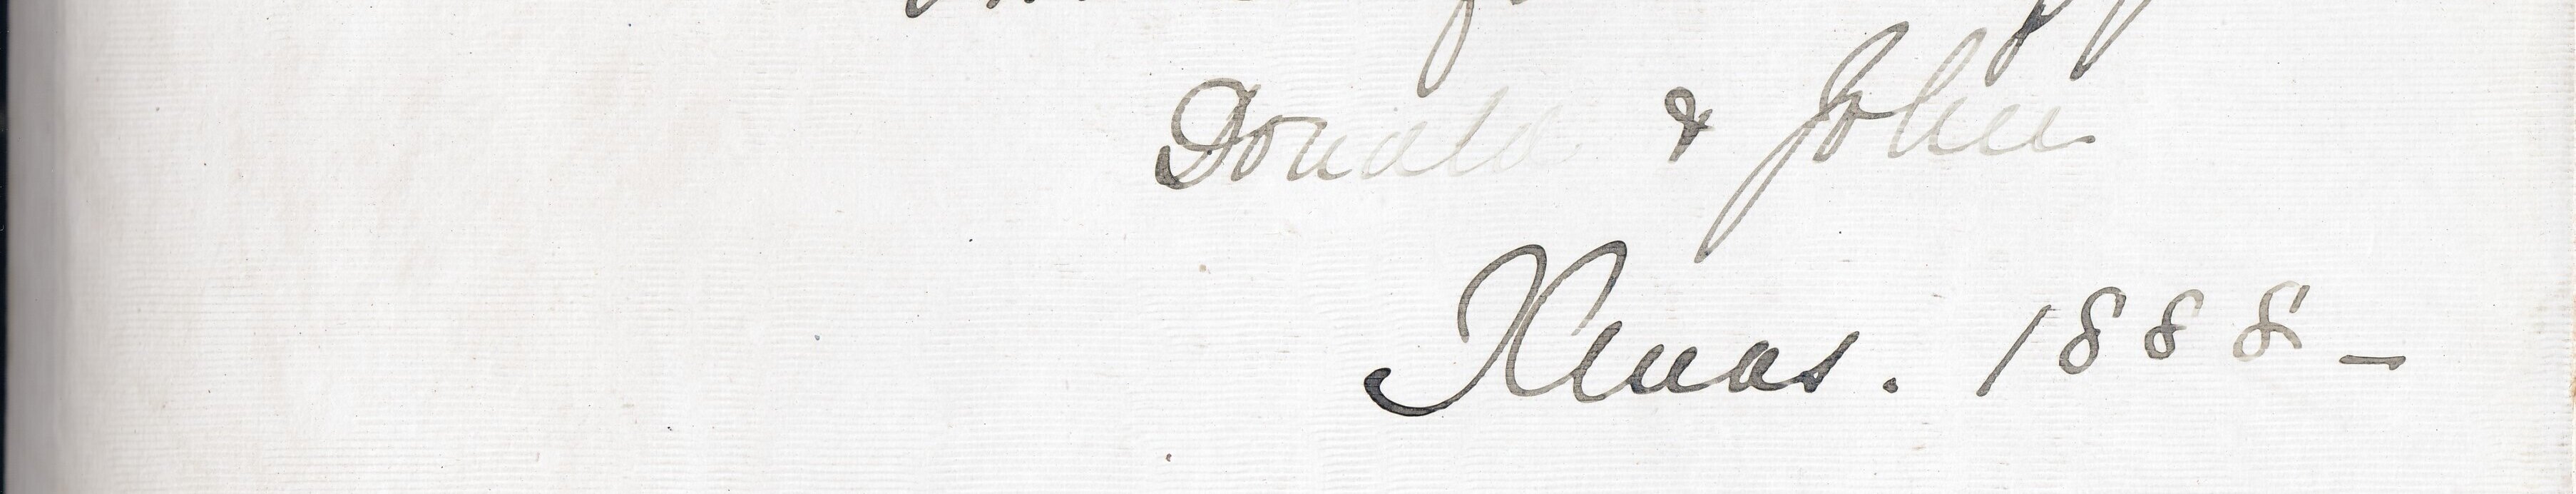 Donald & John
Xmas. 1888 -